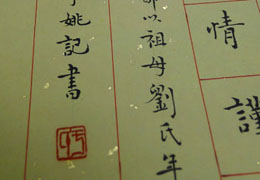 情謹
以祖母劉氏年
姚記書